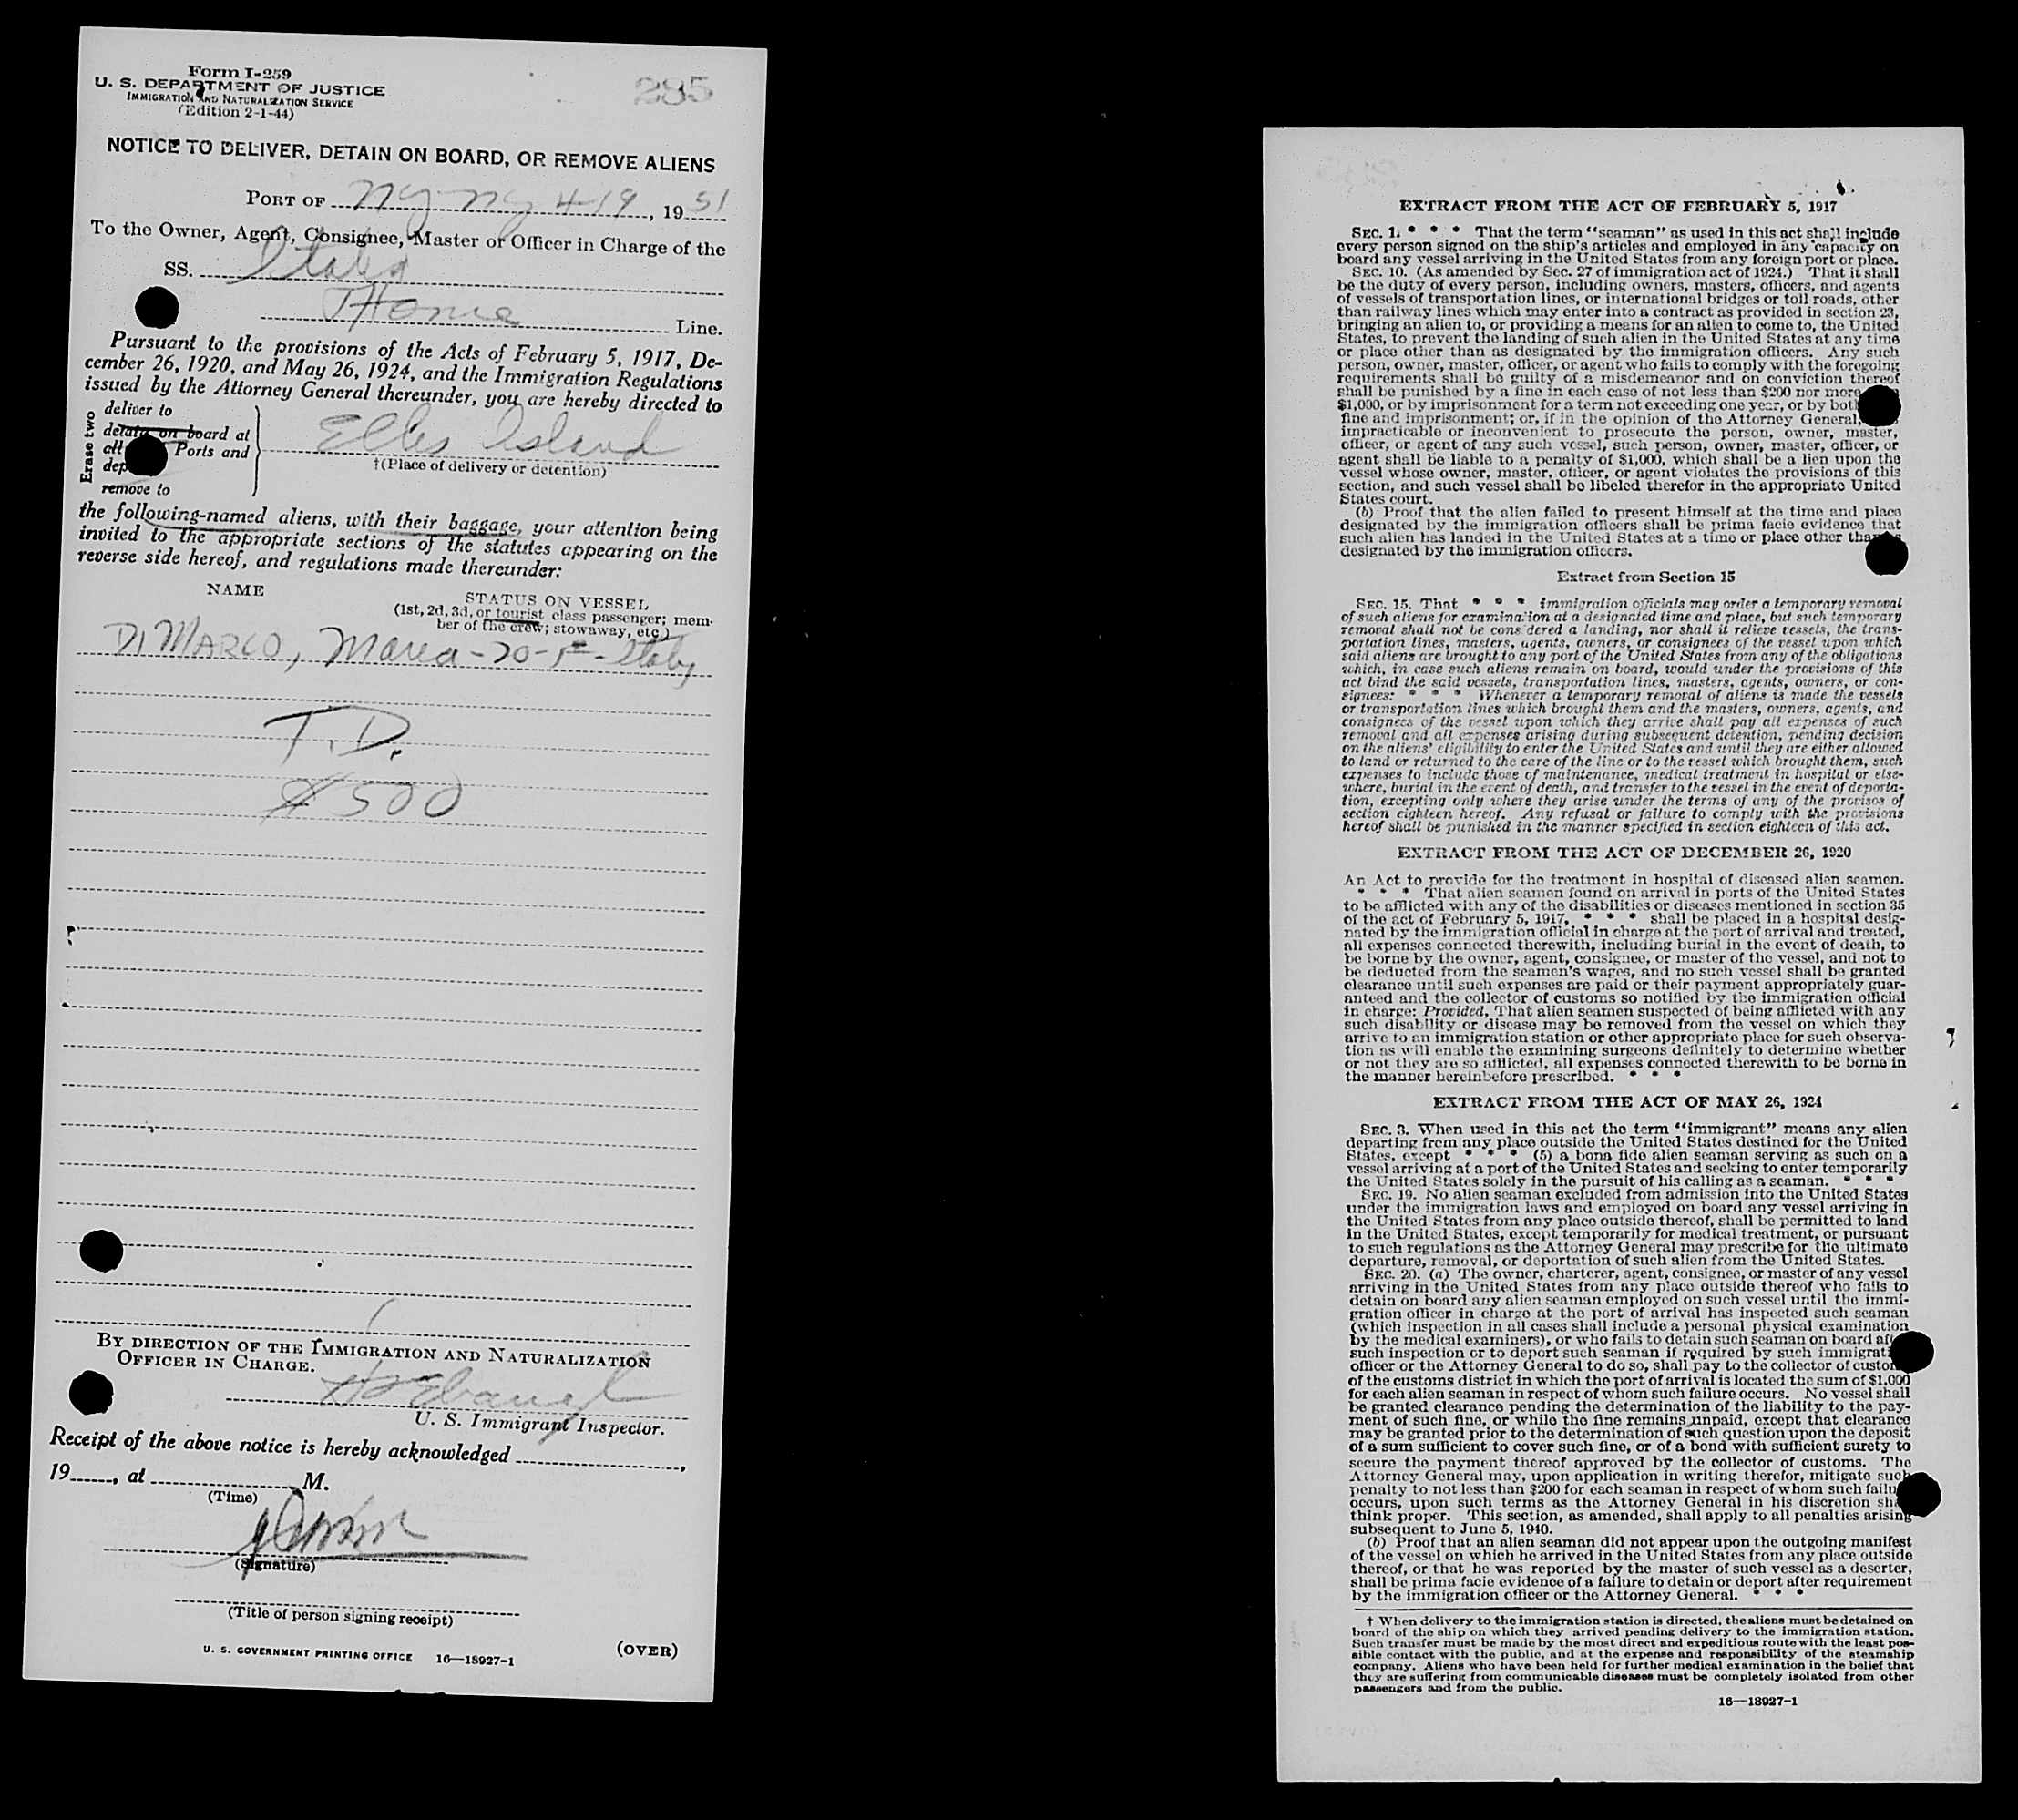 Form I-259
U. S. DEPARTMENT OF JUSTICE
IMMIGRATION AND NATURALIZATION SERVICE
(Edition 2-1-44)
285
NOTICE TO DELIVER, DETAIN ON BOARD, OR REMOVE ALIENS
PORT OF NY NY 4-19, 1951
To the Owner, Agent, Consignee, Master or Officer in Charge of the
SS. Italia
Home Line.
Pursuant to the provisions of the Acts of February 5, 1917, De-
cember 26, 1920, and May 26, 1924, and the Immigration Regulations
issued by the Attorney General thereunder, you are hereby directed to
Erase two
deliver to
detain on board at
all Ports and
dep
remove to
Ellis Island
†(Place of delivery or detention)
the following-named aliens, with their baggage, your attention being
invited to the appropriate sections of the statutes appearing on the
reverse side hereof, and regulations made thereunder:
NAME
STATUS ON VESSEL
(1st, 2d, 3d, or tourist class passenger; mem-
ber of the crew; stowaway, etc.)
DI MARCO, Maria - 20 - F - Italy
T.D.
$500
BY DIRECTION OF THE IMMIGRATION AND NATURALIZATION
OFFICER IN CHARGE.
U. S. Immigrant Inspector.
Receipt of the above notice is hereby acknowledged ,
19 , at M.
(Time)
(Signature)
(Title of person signing receipt)
U. S. GOVERNMENT PRINTING OFFICE 16—18927-1
(OVER)
EXTRACT FROM THE ACT OF FEBRUARY 5, 1917
SEC. 1. * * * That the term "seaman" as used in this act shall include
every person signed on the ship's articles and employed in any capacity on
board any vessel arriving in the United States from any foreign port or place.
SEC. 10. (As amended by Sec. 27 of immigration act of 1924.) That it shall
be the duty of every person, including owners, masters, officers, and agents
of vessels of transportation lines, or international bridges or toll roads, other
than railway lines which may enter into a contract as provided in section 23,
bringing an alien to, or providing a means for an alien to come to, the United
States, to prevent the landing of such alien in the United States at any time
or place other than as designated by the immigration officers. Any such
person, owner, master, officer, or agent who fails to comply with the foregoing
requirements shall be guilty of a misdemeanor and on conviction thereof
shall be punished by a fine in each case of not less than $200 nor more
$1,000, or by imprisonment for a term not exceeding one year, or by both
fine and imprisonment; or, if in the opinion of the Attorney General,
impracticable or inconvenient to prosecute the person, owner, master,
officer, or agent of any such vessel, such person, owner, master, officer, or
agent shall be liable to a penalty of $1,000, which shall be a lien upon the
vessel whose owner, master, officer, or agent violates the provisions of this
section, and such vessel shall be libeled therefor in the appropriate United
States court.
(b) Proof that the alien failed to present himself at the time and place
designated by the immigration officers shall be prima facie evidence that
such alien has landed in the United States at a time or place other than
designated by the immigration officers.
Extract from Section 15
SEC. 15. That * * * immigration officials may order a temporary removal
of such aliens for examination at a designated time and place, but such temporary
removal shall not be considered a landing, nor shall it relieve vessels, the trans-
portation lines, masters, agents, owners, or consignees of the vessel upon which
said aliens are brought to any port of the United States from any of the obligations
which, in case such aliens remain on board, would under the provisions of this
act bind the said vessels, transportation lines, masters, agents, owners, or con-
signees: * * * Whenever a temporary removal of aliens is made the vessels
or transportation lines which brought them and the masters, owners, agents, and
consignees of the vessel upon which they arrive shall pay all expenses of such
removal and all expenses arising during subsequent detention, pending decision
on the aliens' eligibility to enter the United States and until they are either allowed
to land or returned to the care of the line or to the vessel which brought them, such
expenses to include those of maintenance, medical treatment in hospital or else-
where, burial in the event of death, and transfer to the vessel in the event of deporta-
tion, excepting only where they arise under the terms of any of the provisos of
section eighteen hereof. Any refusal or failure to comply with the provisions
hereof shall be punished in the manner specified in section eighteen of this act.
EXTRACT FROM THE ACT OF DECEMBER 26, 1920
An Act to provide for the treatment in hospital of diseased alien seamen.
* * * That alien seamen found on arrival in ports of the United States
to be afflicted with any of the disabilities or diseases mentioned in section 35
of the act of February 5, 1917, * * * shall be placed in a hospital desig-
nated by the immigration official in charge at the port of arrival and treated,
all expenses connected therewith, including burial in the event of death, to
be borne by the owner, agent, consignee, or master of the vessel, and not to
be deducted from the seamen's wages, and no such vessel shall be granted
clearance until such expenses are paid or their payment appropriately guar-
anteed and the collector of customs so notified by the immigration official
in charge: Provided, That alien seamen suspected of being afflicted with any
such disability or disease may be removed from the vessel on which they
arrive to an immigration station or other appropriate place for such observa-
tion as will enable the examining surgeons definitely to determine whether
or not they are so afflicted, all expenses connected therewith to be borne in
the manner hereinbefore prescribed. * * *
EXTRACT FROM THE ACT OF MAY 26, 1924
SEC. 3. When used in this act the term "immigrant" means any alien
departing from any place outside the United States destined for the United
States, except * * * (5) a bona fide alien seaman serving as such on a
vessel arriving at a port of the United States and seeking to enter temporarily
the United States solely in the pursuit of his calling as a seaman. * * *
SEC. 19. No alien seaman excluded from admission into the United States
under the immigration laws and employed on board any vessel arriving in
the United States from any place outside thereof, shall be permitted to land
in the United States, except temporarily for medical treatment, or pursuant
to such regulations as the Attorney General may prescribe for the ultimate
departure, removal, or deportation of such alien from the United States.
SEC. 20. (a) The owner, charterer, agent, consignee, or master of any vessel
arriving in the United States from any place outside thereof who fails to
detain on board any alien seaman employed on such vessel until the immi-
gration officer in charge at the port of arrival has inspected such seaman
(which inspection in all cases shall include a personal physical examination
by the medical examiners), or who fails to detain such seaman on board aft
such inspection or to deport such seaman if required by such immigrati
officer or the Attorney General to do so, shall pay to the collector of custom
of the customs district in which the port of arrival is located the sum of $1,000
for each alien seaman in respect of whom such failure occurs. No vessel shall
be granted clearance pending the determination of the liability to the pay-
ment of such fine, or while the fine remains unpaid, except that clearance
may be granted prior to the determination of such question upon the deposit
of a sum sufficient to cover such fine, or of a bond with sufficient surety to
secure the payment thereof approved by the collector of customs. The
Attorney General may, upon application in writing therefor, mitigate such
penalty to not less than $200 for each seaman in respect of whom such failu
occurs, upon such terms as the Attorney General in his discretion sha
think proper. This section, as amended, shall apply to all penalties arising
subsequent to June 5, 1940.
(b) Proof that an alien seaman did not appear upon the outgoing manifest
of the vessel on which he arrived in the United States from any place outside
thereof, or that he was reported by the master of such vessel as a deserter,
shall be prima facie evidence of a failure to detain or deport after requirement
by the immigration officer or the Attorney General. * * *
† When delivery to the immigration station is directed, the aliens must be detained on
board of the ship on which they arrived pending delivery to the immigration station.
Such transfer must be made by the most direct and expeditious route with the least pos-
sible contact with the public, and at the expense and responsibility of the steamship
company. Aliens who have been held for further medical examination in the belief that
they are suffering from communicable diseases must be completely isolated from other
passengers and from the public.
16—18927-1